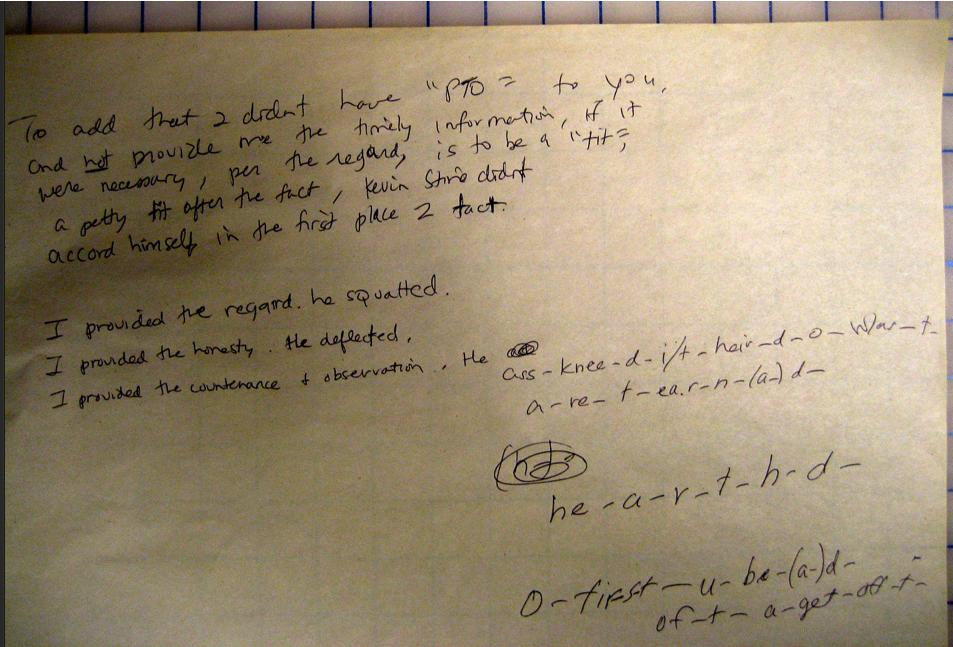 To add that 2 didnt have "PTO = to you,
and not provide me the timely information, if it
were necessary, per the regard, is to be a "fit",
a petty fit after the fact, Kevin didnt
accord himself in the first place 2 fact.
I provided the regard. he squatted.
I provided the honesty. He deflected.
I provided the countenance & observation. He
ass-knee-d-i/t-hair-d-o-War-t-
a-re-t-ea.r-n-(a-)d-
he-a-r-t-h-d-
O-first-u-be-(a-)d-
of-t-a-get-off-t-